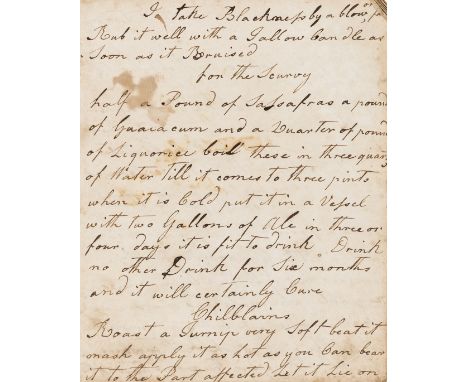 To take Blackness by a blow, or
Rub it well with a Tallow Candle as
Soon as it Bruised
for the Scurvy
half a Pound of Sassafras a pound
of Guaiacum and a Quarter of pound
of Liquorice boil these in three quar
of Water till it comes to three pints
when it is Cold put it in a Vessel
with two Gallons of Ale in three or
four days it is fit to drink Drink
no other Drink for Six months
and it will certainly Cure
Chilblains
Roast a Turnip very Soft beat it
mash apply it as hot as you Can bear
it to the Part affected Let it Lie on